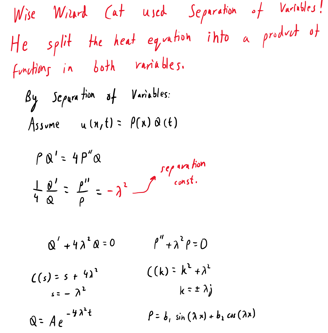 Wise Wizard Cat used Separation of Variables!
He split the heat equation into a product of
functions in both variables.
By Separation of Variables:
Assume u(x,t) = P(x) Q(t)
PQ' = 4P''Q
1/4 Q'/Q = P''/P = -λ²
separation
const.
Q' + 4λ²Q = 0 P'' + λ²P = 0
C(s) = s + 4λ² C(k) = k² + λ²
s = -λ² k = ±λj
Q = Ae^-4λ²t P = b₁ sin(λx) + b₂ cos(λx)